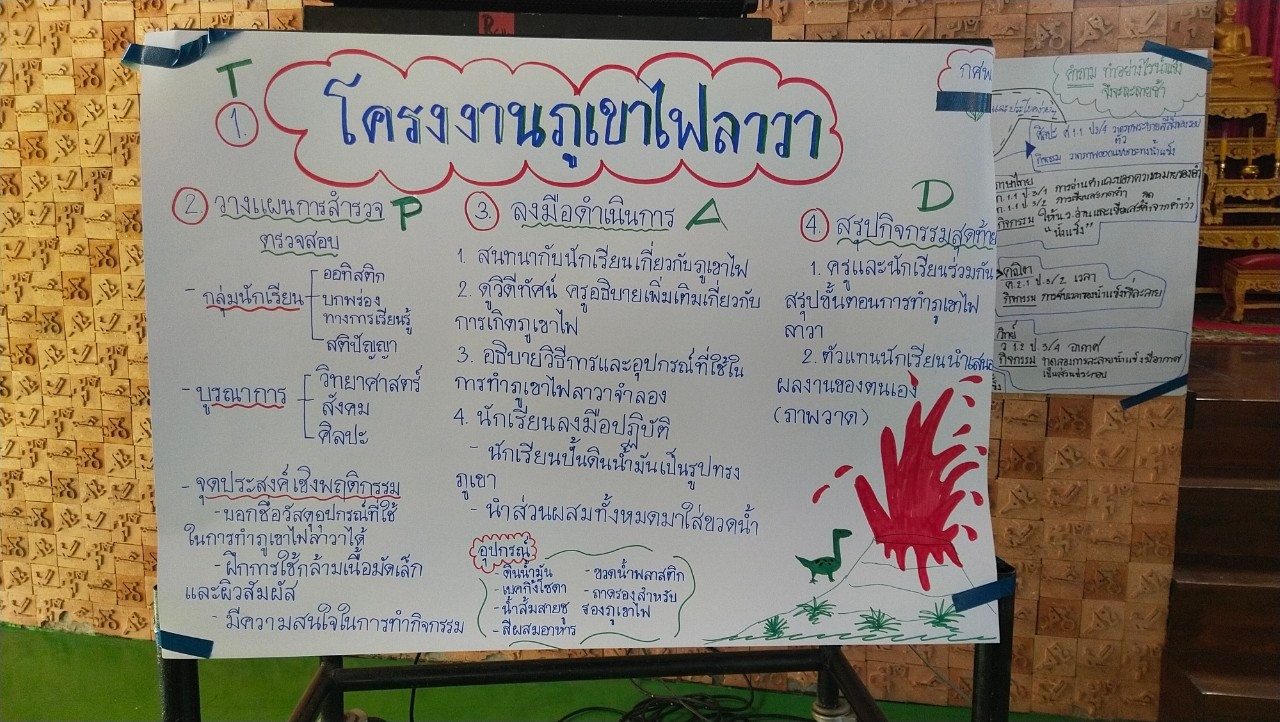 T
1.
โครงงานภูเขาไฟลาวา
กศพ
2 วางแผนการสำรวจ P
ตรวจสอบ
- กลุ่มนักเรียน
ออทิสติก
บกพร่อง
ทางการเรียนรู้
สติปัญญา
- บูรณาการ
วิทยาศาสตร์
สังคม
ศิลปะ
- จุดประสงค์เชิงพฤติกรรม
- บอกชื่อวัสดุอุปกรณ์ที่ใช้
ในการทำภูเขาไฟลาวาได้
- ฝึกการใช้กล้ามเนื้อมัดเล็ก
และผิวสัมผัส
- มีความสนใจในการทำกิจกรรม
3. ลงมือดำเนินการ A
1. สนทนากับนักเรียนเกี่ยวกับภูเขาไฟ
2. ดูวิดีทัศน์ ครูอธิบายเพิ่มเติมเกี่ยวกับ
การเกิดภูเขาไฟ
3. อธิบายวิธีการและอุปกรณ์ที่ใช้ใน
การทำภูเขาไฟลาวาจำลอง
4. นักเรียนลงมือปฏิบัติ
- นักเรียนปั้นดินน้ำมันเป็นรูปทรง
ภูเขา
- นำส่วนผสมทั้งหมดมาใส่ขวดน้ำ
อุปกรณ์
- ดินน้ำมัน
- เบคกิ้งโซดา
- น้ำส้มสายชู
- สีผสมอาหาร
- ขวดน้ำพลาสติก
- ถาดรองสำหรับ
รองภูเขาไฟ
D
4. สรุปกิจกรรมสุดท้าย
1. ครูและนักเรียนร่วมกัน
สรุปขั้นตอนการทำภูเขาไฟ
ลาวา
2. ตัวแทนนักเรียนนำเสนอ
ผลงานของตนเอง
(ภาพวาด)
คำถาม ทำอย่างไรน้ำแข็ง
จึงจะละลายช้า
ศิลปะ ศ 1.1 ป3/4
กิจกรรม
ภาษาไทย
กิจกรรม
"น้ำแข็ง"
คณิตฯ
ค.2.1 ป.3/2 เวลา
กิจกรรม
ว 1.2 ป.3/4 อากาศ
กิจกรรม
เป็นส่วนประกอบ